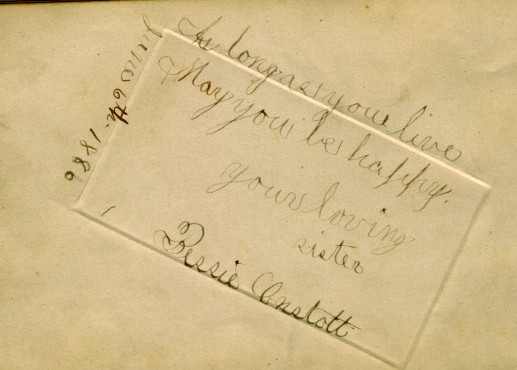 As long as you live
May you be happy.
your loving
sister
Bessie Onstott
June 6th. 1886